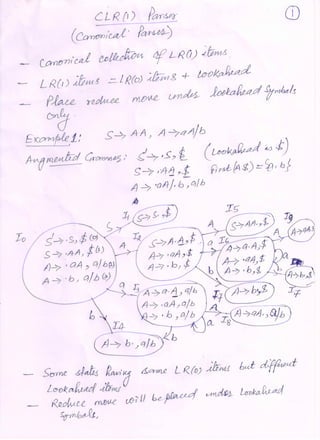 CLR(1) Parser
①
(Canonical Parser)
- Canonical collection of LR(1) items
- LR(1) items = LR(0) items + lookahead
- Place reduce move under lookahead symbols only.
Example 1: S → AA, A → aA/b
Augmented Grammar: S' → ·S, $ (Lookahead is $)
S → ·AA, $ First(A$) = {a, b}
A → ·aA/·b, a/b
I1
S' → S·, $
I0
S' → ·S, $ (0)
S → ·AA, $ (1)
A → ·aA, a/b
A → ·b, a/b
I2
S → A·A, $
A → ·aA, $
A → ·b, $
I5
S → AA·, $
I6
A → a·A, $
A → ·aA, $
A → ·b, $
I9
I7
A → b·, $
A → b·, $
I7
I3
A → a·A, a/b
A → ·aA, a/b
A → ·b, a/b
I8
A → aA·, a/b
I4
A → b·, a/b
- Some states having same LR(0) items but different
Lookahead items
- Reduce move will be placed under Lookahead
Symbols.